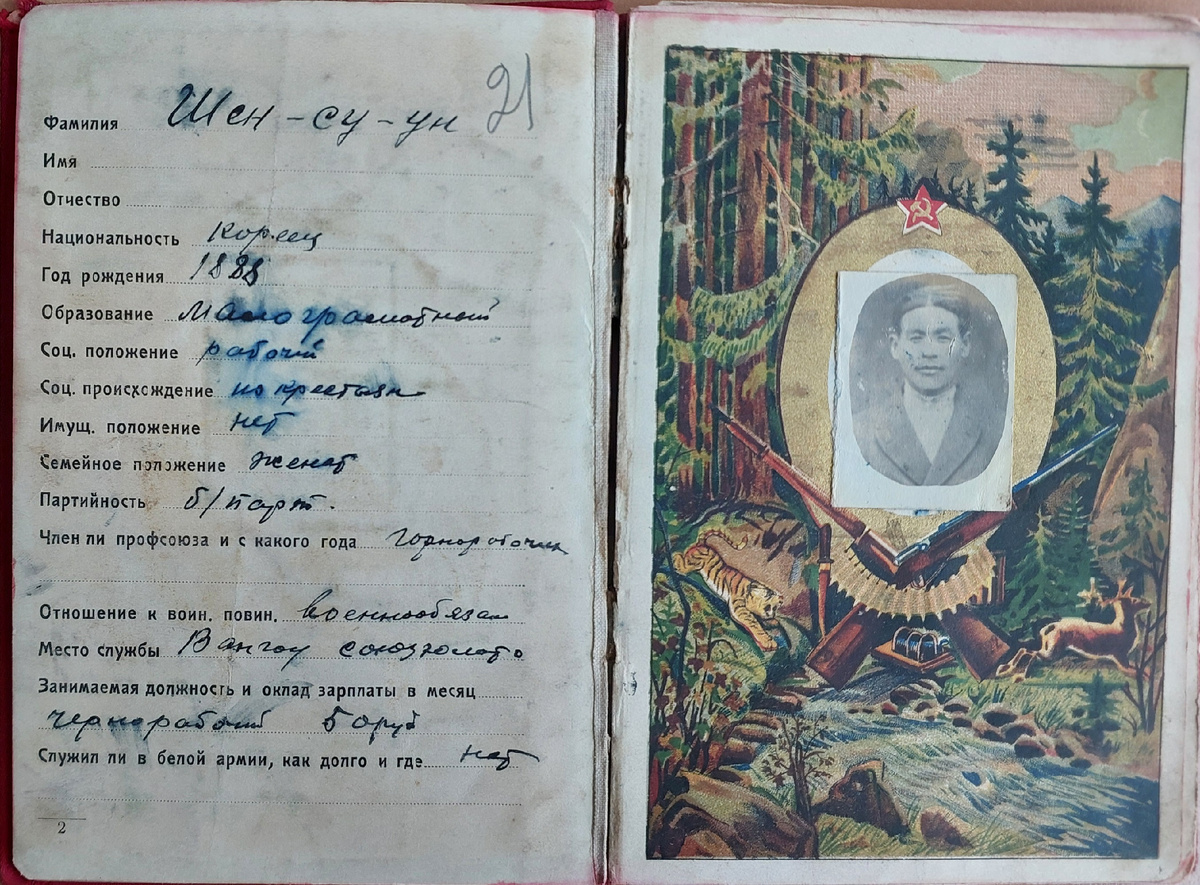 21
Фамилия Шен-су-ун
Имя
Отчество
Национальность Кореец
Год рождения 1888
Образование Малограмотный
Соц. положение рабочий
Соц. происхождение из крестьян
Имущ. положение нет
Семейное положение женат
Партийность б/парт.
Член ли профсоюза и с какого года Горнорабочих
Отношение к воин. повин. военнообязан
Место службы Вангоу союззолото
Занимаемая должность и оклад зарплаты в месяц
чернорабочий 50 руб
Служил ли в белой армии, как долго и где нет
2